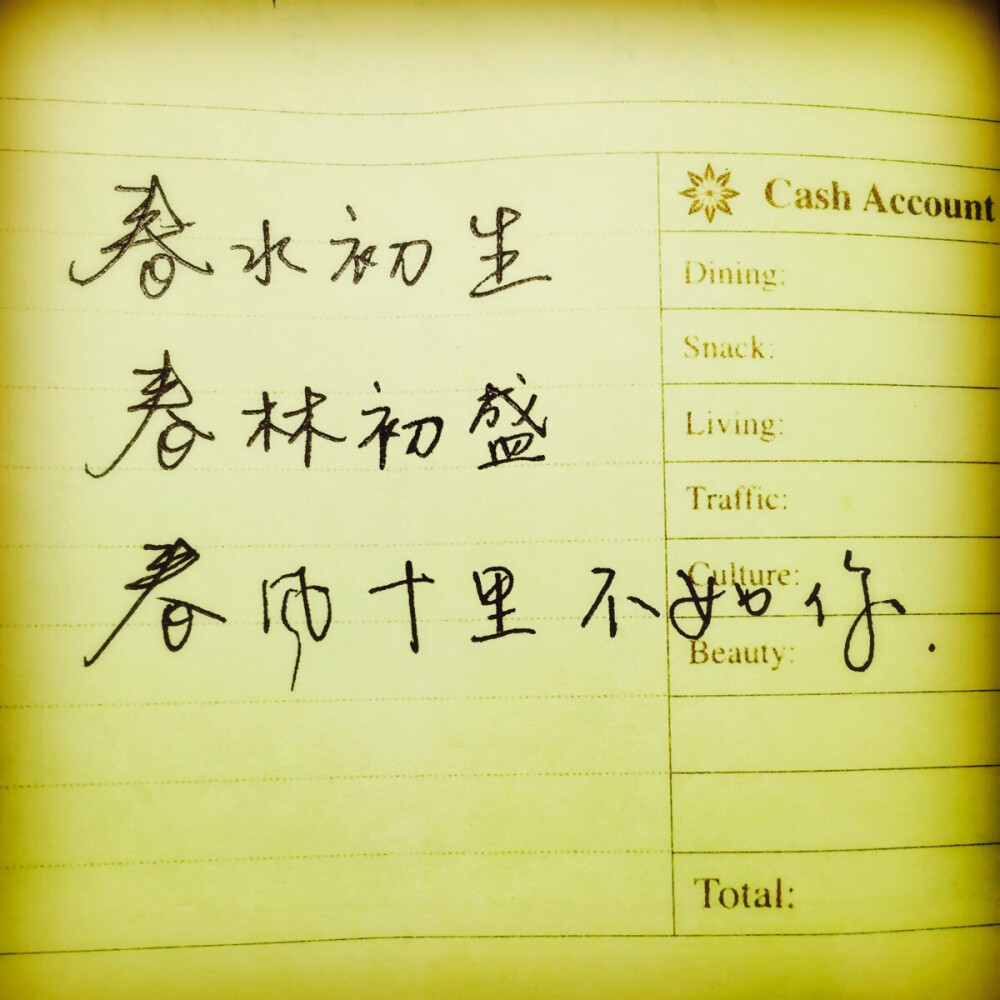 春水初生
春林初盛
春风十里不如你.
Cash Account
Dining:
Snack:
Living:
Traffic:
Culture:
Beauty:
Total: